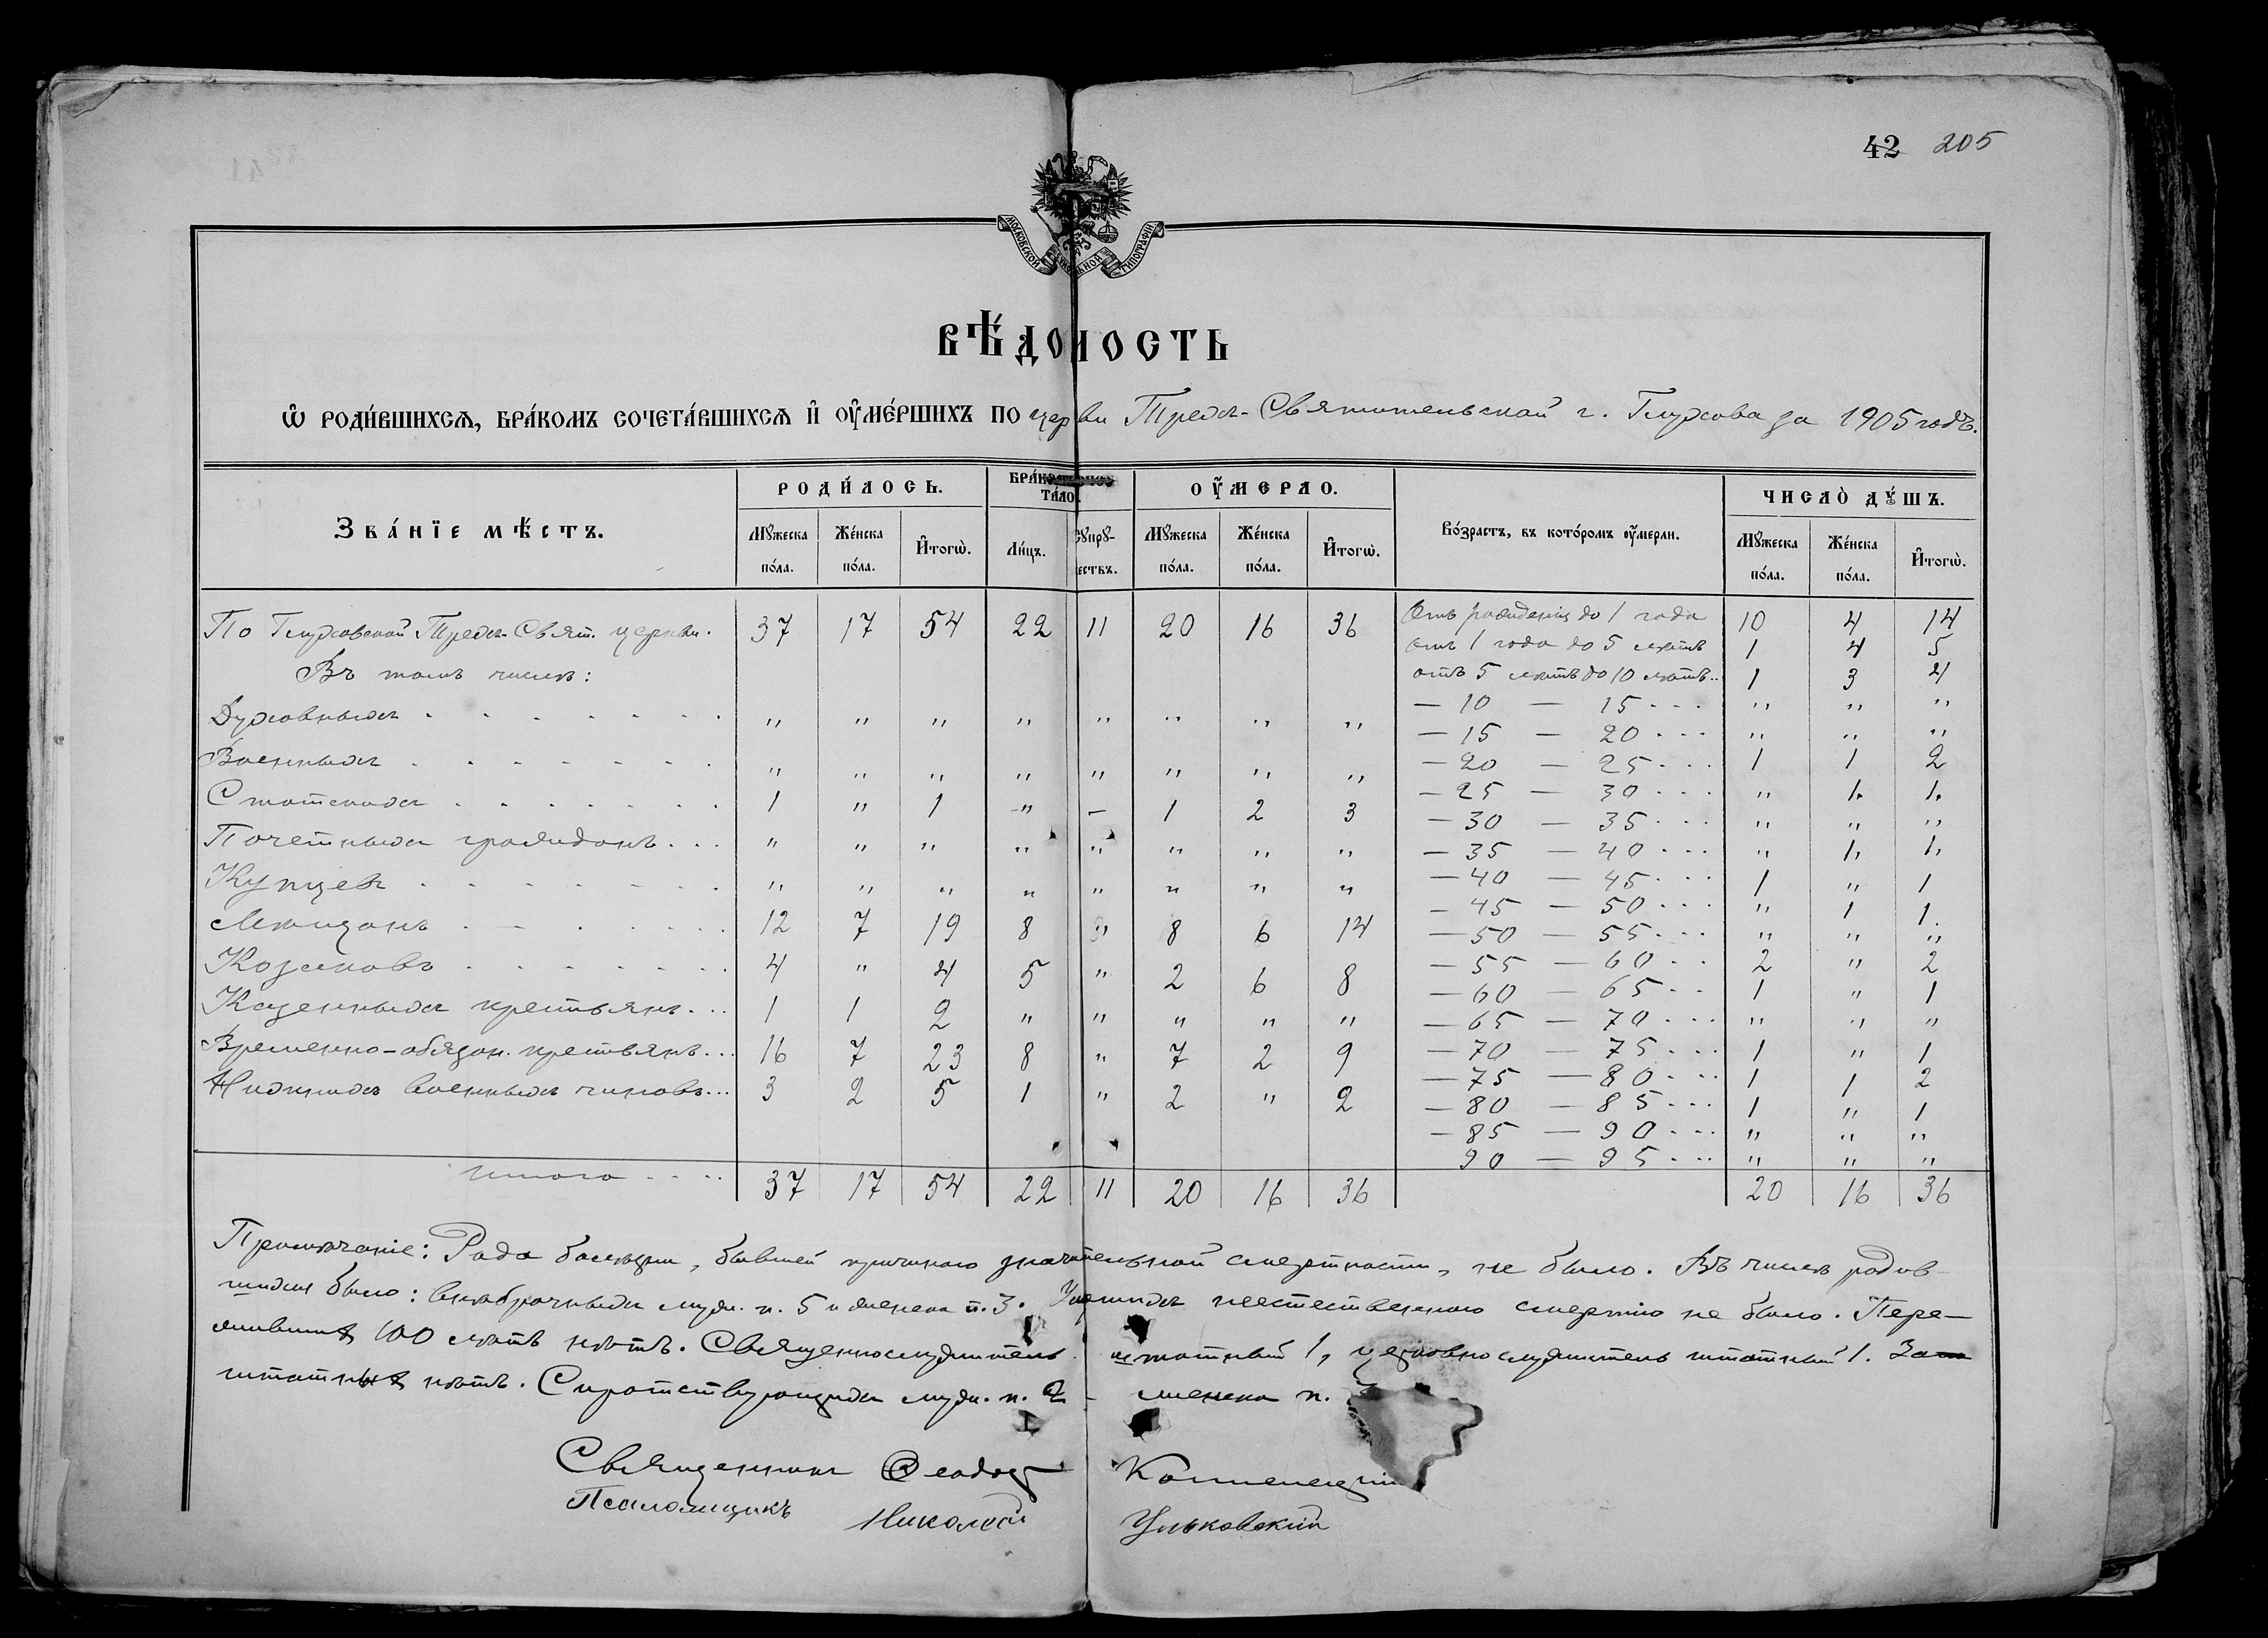 42 205
МОСКОВСКОЙ СѴНОДАЛЬНОЙ ТИПОГРАФІИ
ВѢДОМОСТЬ
Ѡ РОДИВШИХСЯ, БРАКОМЪ СОЧЕТАВШИХСЯ И ОУМЕРШИХЪ ПО церкви Трехъ-Святительской г. Глухова за 1905 годъ.
ЗВАНІЕ МѢСТЪ. РОДИЛОСЬ. БРАКО ТАЛО. ОУМЕРЛО. Возрастъ, въ которомъ оумерли. ЧИСЛО ДУШЪ.
Мужеска пола. Женска пола. Итогѡ. Лицъ. Супружествъ. Мужеска пола. Женска пола. Итогѡ. Мужеска пола. Женска пола. Итогѡ.
По Глуховской Трехъ-Свят. церкви. 37 17 54 22 11 20 16 36 Отъ рожденія до 1 года 10 4 14
отъ 1 года до 5 лѣтъ 1 4 5
Въ томъ числѣ: отъ 5 лѣтъ до 10 лѣтъ.. 1 3 4
Духовныхъ . . . . . . . " " " " " " " " — 10 — 15 . . . " " "
— 15 — 20 . . . " " "
Военныхъ . . . . . . . " " " " " " " " — 20 — 25 . . . 1 1 2
Статскихъ . . . . . . . 1 " 1 " — 1 2 3 — 25 — 30 . . . " 1. 1.
— 30 — 35 . . . " " "
Почетныхъ гражданъ . . . " " " " " " " " — 35 — 40 . . . " 1, 1,
Купцевъ . . . . . . . " " " " " " " " — 40 — 45 . . . 1 " 1
— 45 — 50 . . . " 1 1.
Мѣщанъ . . . . . . . 12 7 19 8 " 8 6 14 — 50 — 55 . . . " " "
Козаковъ . . . . . . . 4 " 4 5 " 2 6 8 — 55 — 60 . . 2 " 2
— 60 — 65 . . 1 " 1
Казенныхъ крестьянъ. . . 1 1 2 " " " " " — 65 — 70 . . . " " "
Временно-обязан. крестьянъ. . . 16 7 23 8 " 7 2 9 — 70 — 75 . . . 1 " 1
— 75 — 80 . . . 1 1 2
Нижнихъ военныхъ чиновъ... 3 2 5 1 " 2 " 2 — 80 — 85 . . . 1 " 1
— 85 — 90 . . . " " "
90 — 95 . . . " " "
Итого . . . . 37 17 54 22 11 20 16 36 20 16 36
Примѣчаніе: Рода болѣзни, бывшей причиною значительной смертности, не было. Въ числѣ родив-
шихся было: внѣбрачныхъ муж. п. 5 и женска п. 3. Умершихъ неестественною смертію не было. Пере-
жившихъ 100 лѣтъ нѣтъ. Священнослужитель штатный 1, церковнослужитель штатный 1. За
штатныхъ нѣтъ. Сиротствующихъ муж. п. 2 женска п.
Священникъ Ѳеодоръ
Псаломщикъ Николай Ульковскій